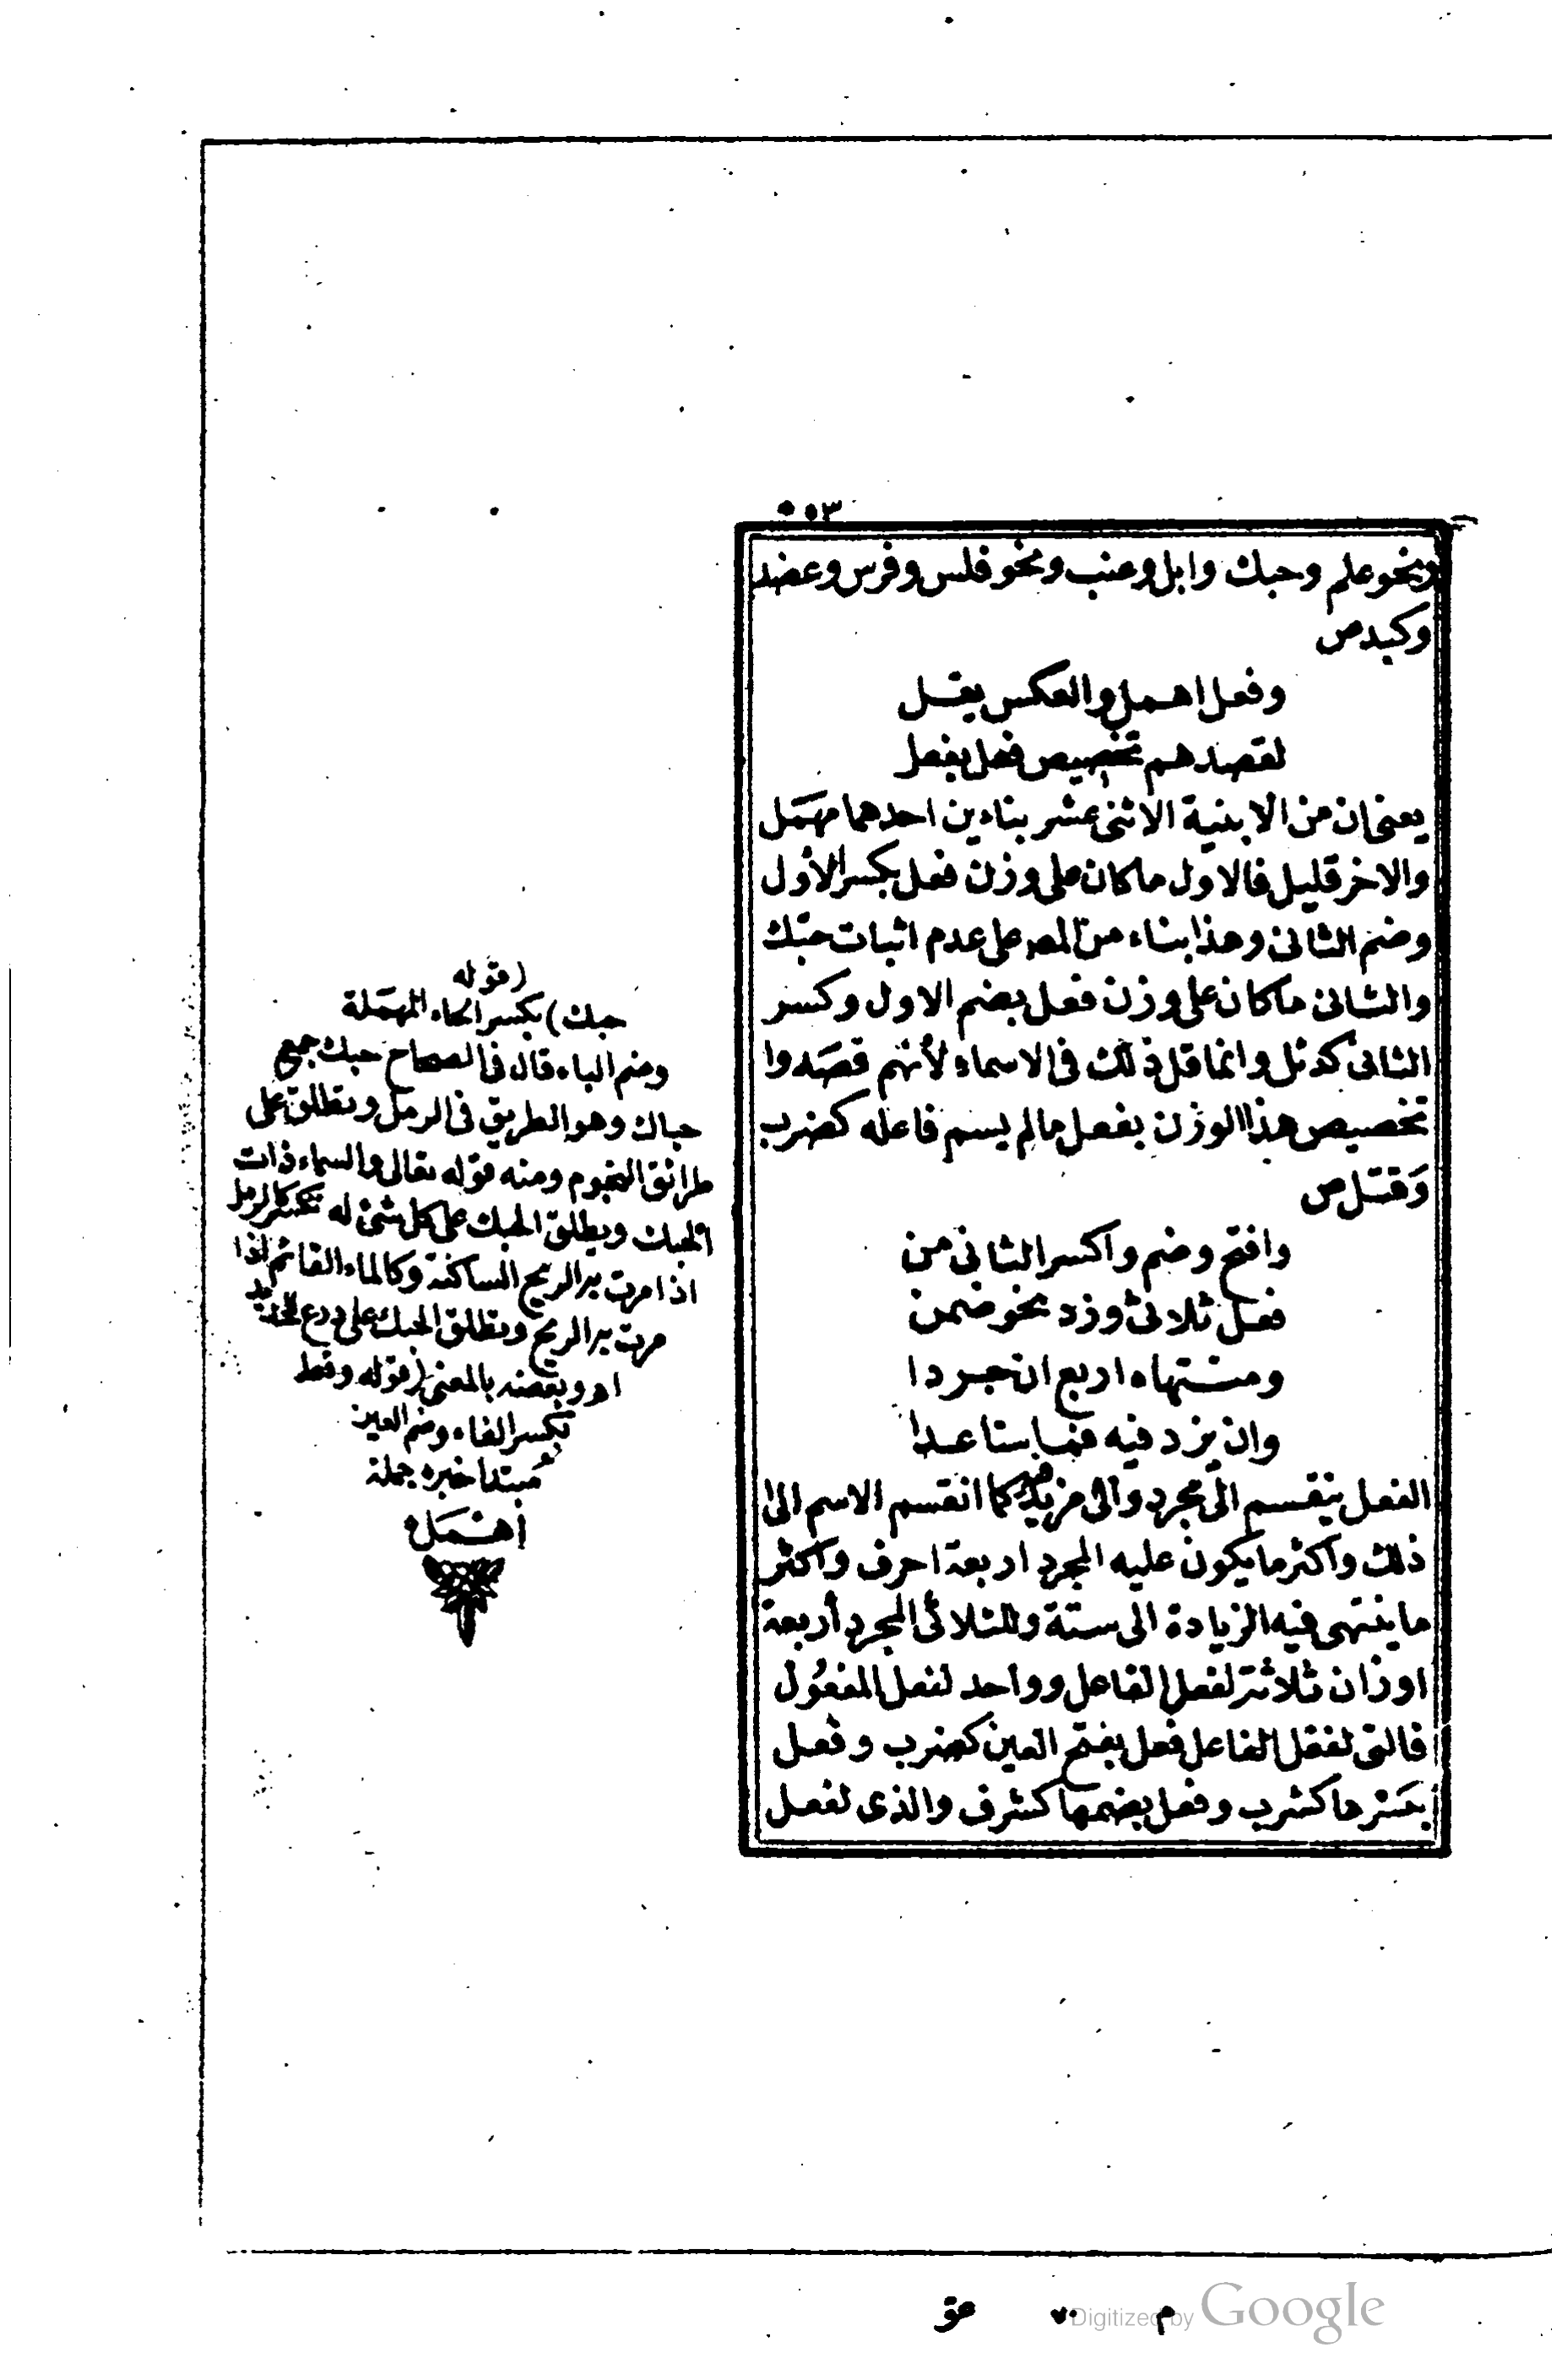 ٥٥٣
ونحو علم وحبك وابل وعنب ونحو فلس وفرس وعضد
وكبد ص
وفعل اهمل والعكس يقل
لقصدهم تخصيص فعل بفعل
يعنى ان من الابنية الاثنى عشر بناءين احدهما مهمل
والاخر قليل فالاول ما كان على وزن فعل بكسر الأول
وضم الثانى وهذا بناء من المص على عدم اثبات حبك
والثانى ما كان على وزن فعل بضم الاول وكسر
الثانى كدئل وانما قل ذلك فى الاسماء لأنهم قصدوا
تخصيص هذا الوزن بفعل ما لم يسم فاعله كضرب
وقتل ص
وافتح وضم واكسر الثانى من
فعل ثلاثى وزد نحو ضمن
ومنتهاه اربع ان جردا
وان يزد فيه فما ستا عدا
الفعل ينقسم الى مجرد والى مزيد فيه كما انقسم الاسم الى
ذلك واكثر ما يكون عليه المجرد اربعة احرف واكثر
ما ينتهى فيه الزيادة الى ستة وللثلاثى المجرد أربعة
اوزان ثلاثة لفعل الفاعل وواحد لفعل المفعول
فالتى لفعل الفاعل فعل بفتح العين كضرب وفعل
بكسرها كشرب وفعل بضمها كشرف والذى لفعل
(قوله
حبك) بكسر الحاء المهملة
وضم الباء قال فى الصحاح حبك جمع
حباك وهو الطريق فى الرمل ويطلق على
طرائق النجوم ومنه قوله تعالى والسماء ذات
الحبك ويطلق الحبك على كل شئ له تكسر كالرمل
اذا مرت به الريح الساكنة وكالماء القائم اذا
مرت به الريح ويطلق الحبك على درع الحديد
اه وبعضه بالمعنى (قوله وفعل
بكسر الفاء وضم العين
مبتدا خبره جملة
اهمل ه
م ٧٠ عق
Digitized by Google